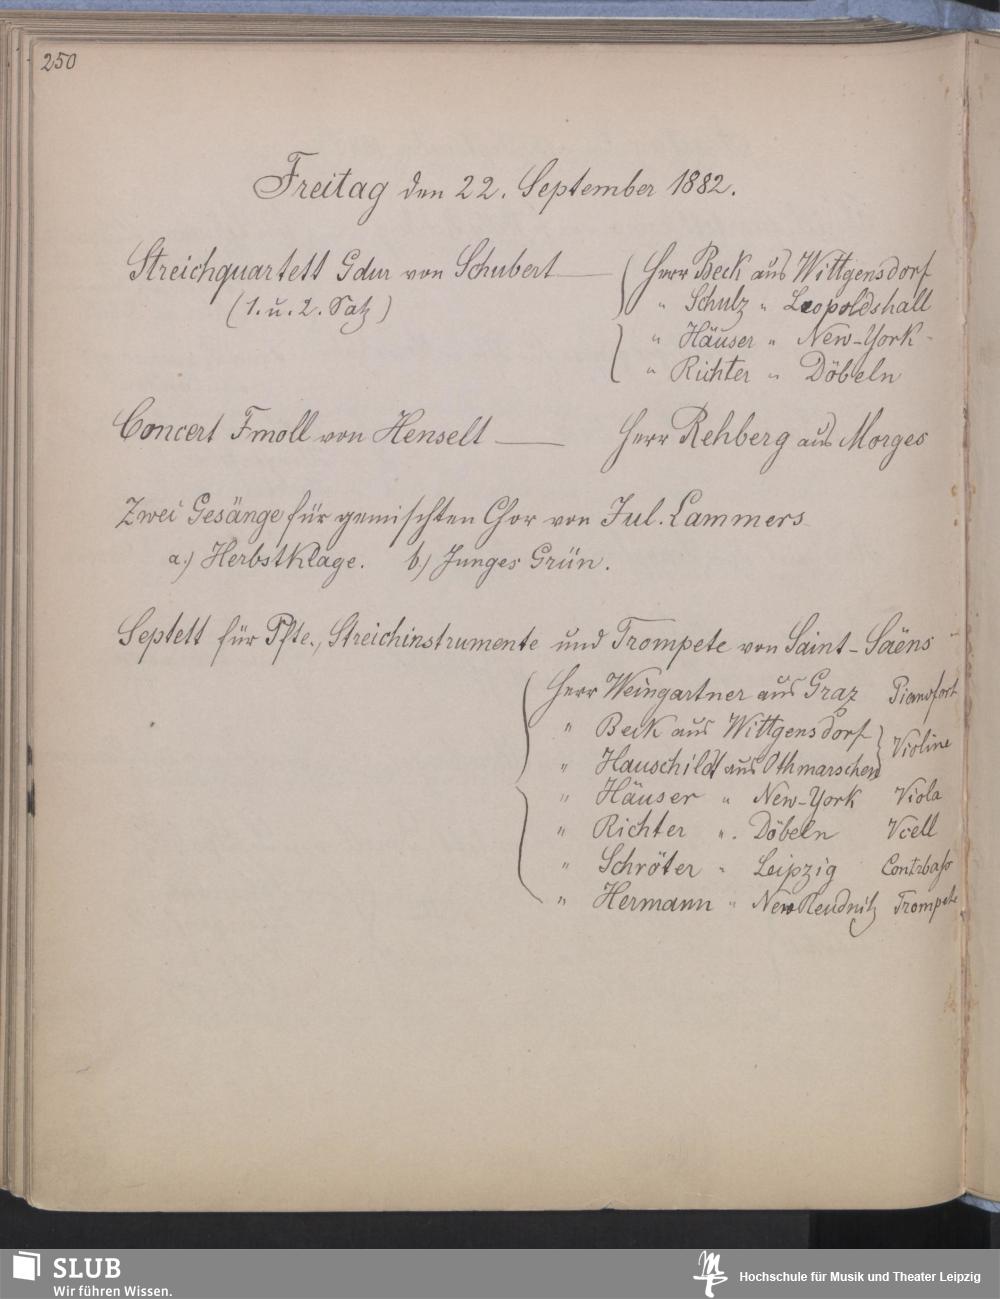 250
Freitag den 22. September 1882.
Streichquartett Gdur von Schubert — Herr Beck aus Wittgensdorf
(1. u. 2. Satz) " Schulz " Leopoldshall
" Häuser " New-York
" Richter " Döbeln
Concert Fmoll von Henselt — Herr Rehberg aus Morges
Zwei Gesänge für gemischten Chor von Jul. Lammers
a.) Herbstklage. b.) Junges Grün.
Septett für Pfte., Streichinstrumente und Trompete von Saint-Saëns
Herr Weingartner aus Graz Pianofort
" Beck aus Wittgensdorf } Violine
" Hauschildt aus Othmarschen
" Häuser " New-York Viola
" Richter " Döbeln Vcell
" Schröter " Leipzig Contrbaß
" Hermann " NeuReudnitz Trompete
SLUB
Wir führen Wissen.
Hochschule für Musik und Theater Leipzig